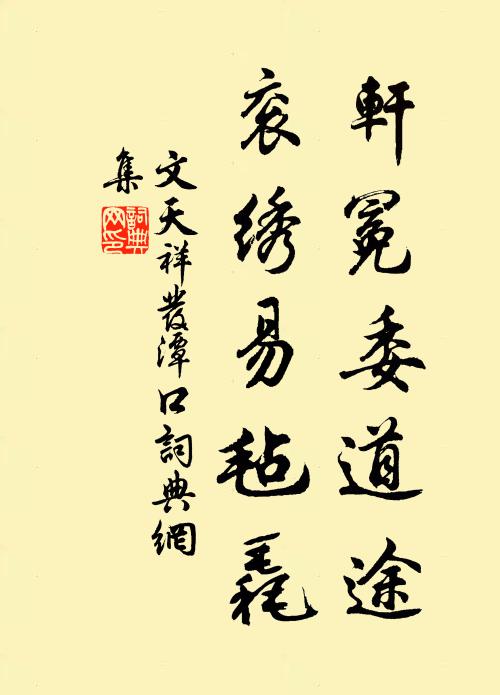 軒冕委道途
衮綉易毡毳
文天祥發潭口詞典網
集
詞典
网印